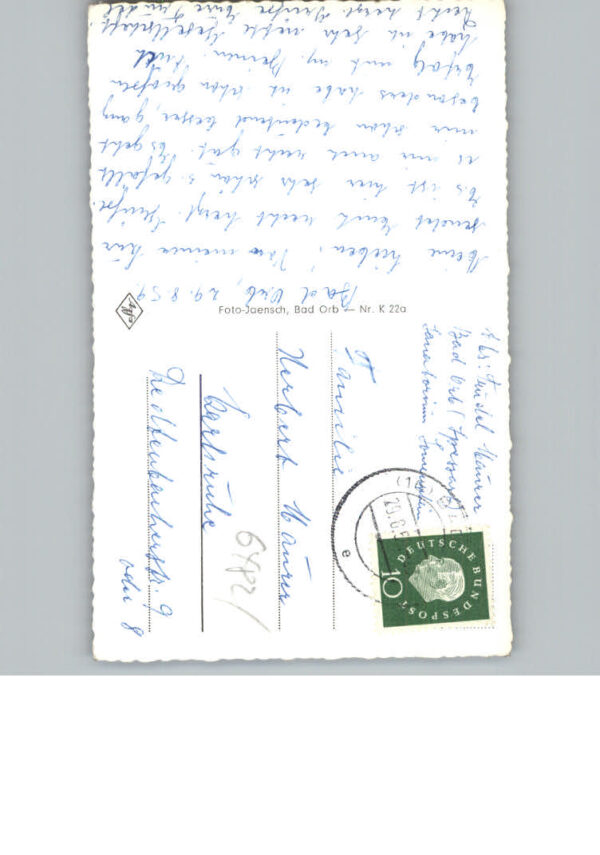 Bad Orb, 29.8.59.
Meine Lieben! Von meiner Kur
sendet Euch recht herzl. Grüße.
Es ist hier sehr schön u. gefällt
es mir auch recht gut. Es geht
mir schon bedeutend besser, ganz
besonders habe ich schon großen
Erfolg mit m. Beinen. Auch
habe ich sehr nette Gesellschaft.
Recht herzl. Grüße Eure
Foto-Jaensch, Bad Orb — Nr. K 22a
Agfa
Abs: Maurer
Bad Orb (Spessart)
Sanatorium
Familie
Herbert Maurer
Karlsruhe
Redtenbacherstr. 9
oder 8
6482/
DEUTSCHE BUNDESPOST
10
29.8.5
e